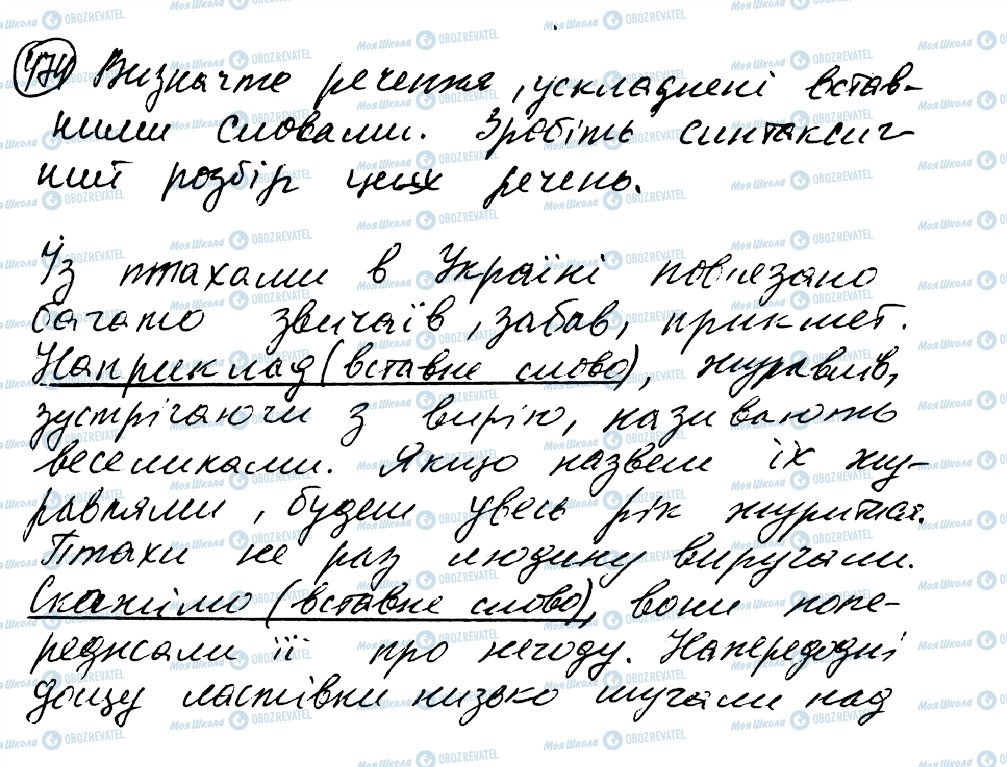 474 Визначте речення, ускладнені встав-
ними словами. Зробіть синтаксич-
ний розбір цих речень.
Із птахами в Україні пов'язано
багато звичаїв, забав, прикмет.
Наприклад (вставне слово), журавлів,
зустрічаючи з вирію, називають
веселиками. Якщо назвеш їх жу-
равлями, будеш увесь рік журитися.
Птахи не раз людину виручали.
Скажімо (вставне слово), вони попе-
реджали її про негоду. Напередодні
дощу ластівки низько шугали над